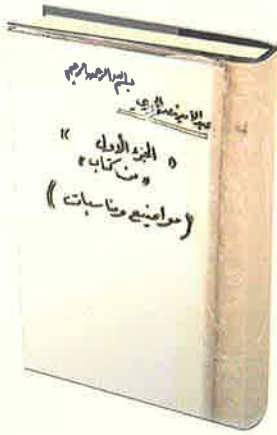 بسم الله الرحمن الرحيم
عبد الأمير
« الجزء الأول »
« من كتاب »
(مواضيع ومناسبات)